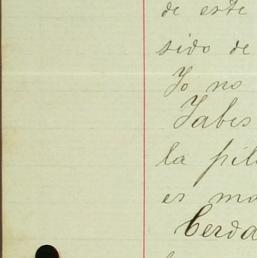 de este
sido de
Yo no
Sabes
la pil
es ma
Cerda